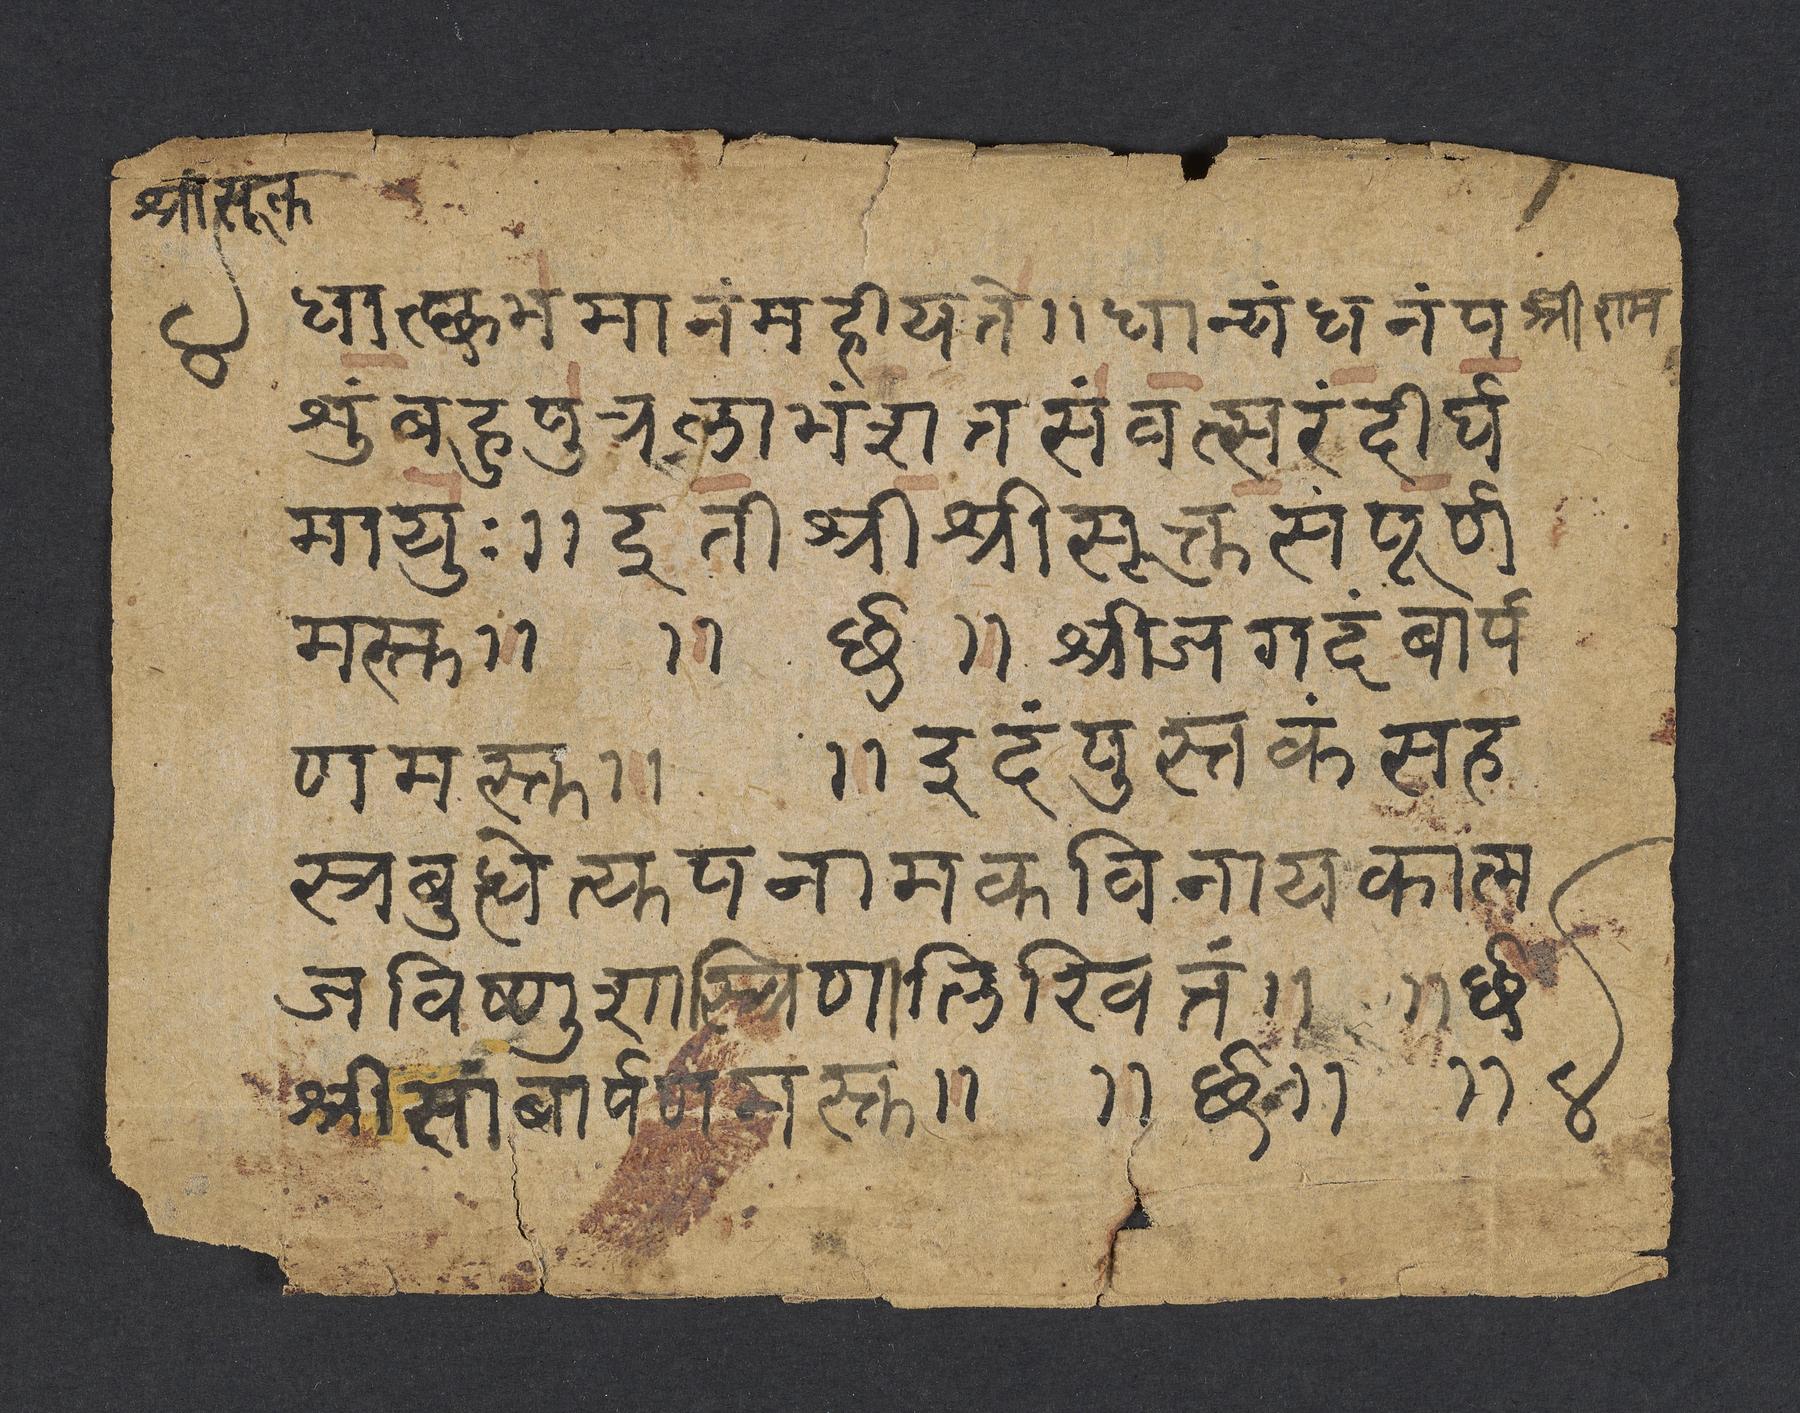 श्रीसूक्त
४
धात्छुभमानंमहीयते॥धान्यंधनंप
श्रीराम
शुंबहुपुत्रलाभंशतसंवत्सरंदीर्घ
मायुः॥इतीश्रीश्रीसूक्तसंपूर्ण
मस्तु॥ ॥ छ ॥ श्रीजगदंबार्प
णमस्तु॥ ॥इदंपुस्तकंसह
स्त्रबुद्धेत्युपनामकविनायकात्म
जविष्णुशास्त्रिणालिखितं॥ ॥छ
श्रीसांबार्पणमस्तु॥ ॥ छ॥ ॥
४